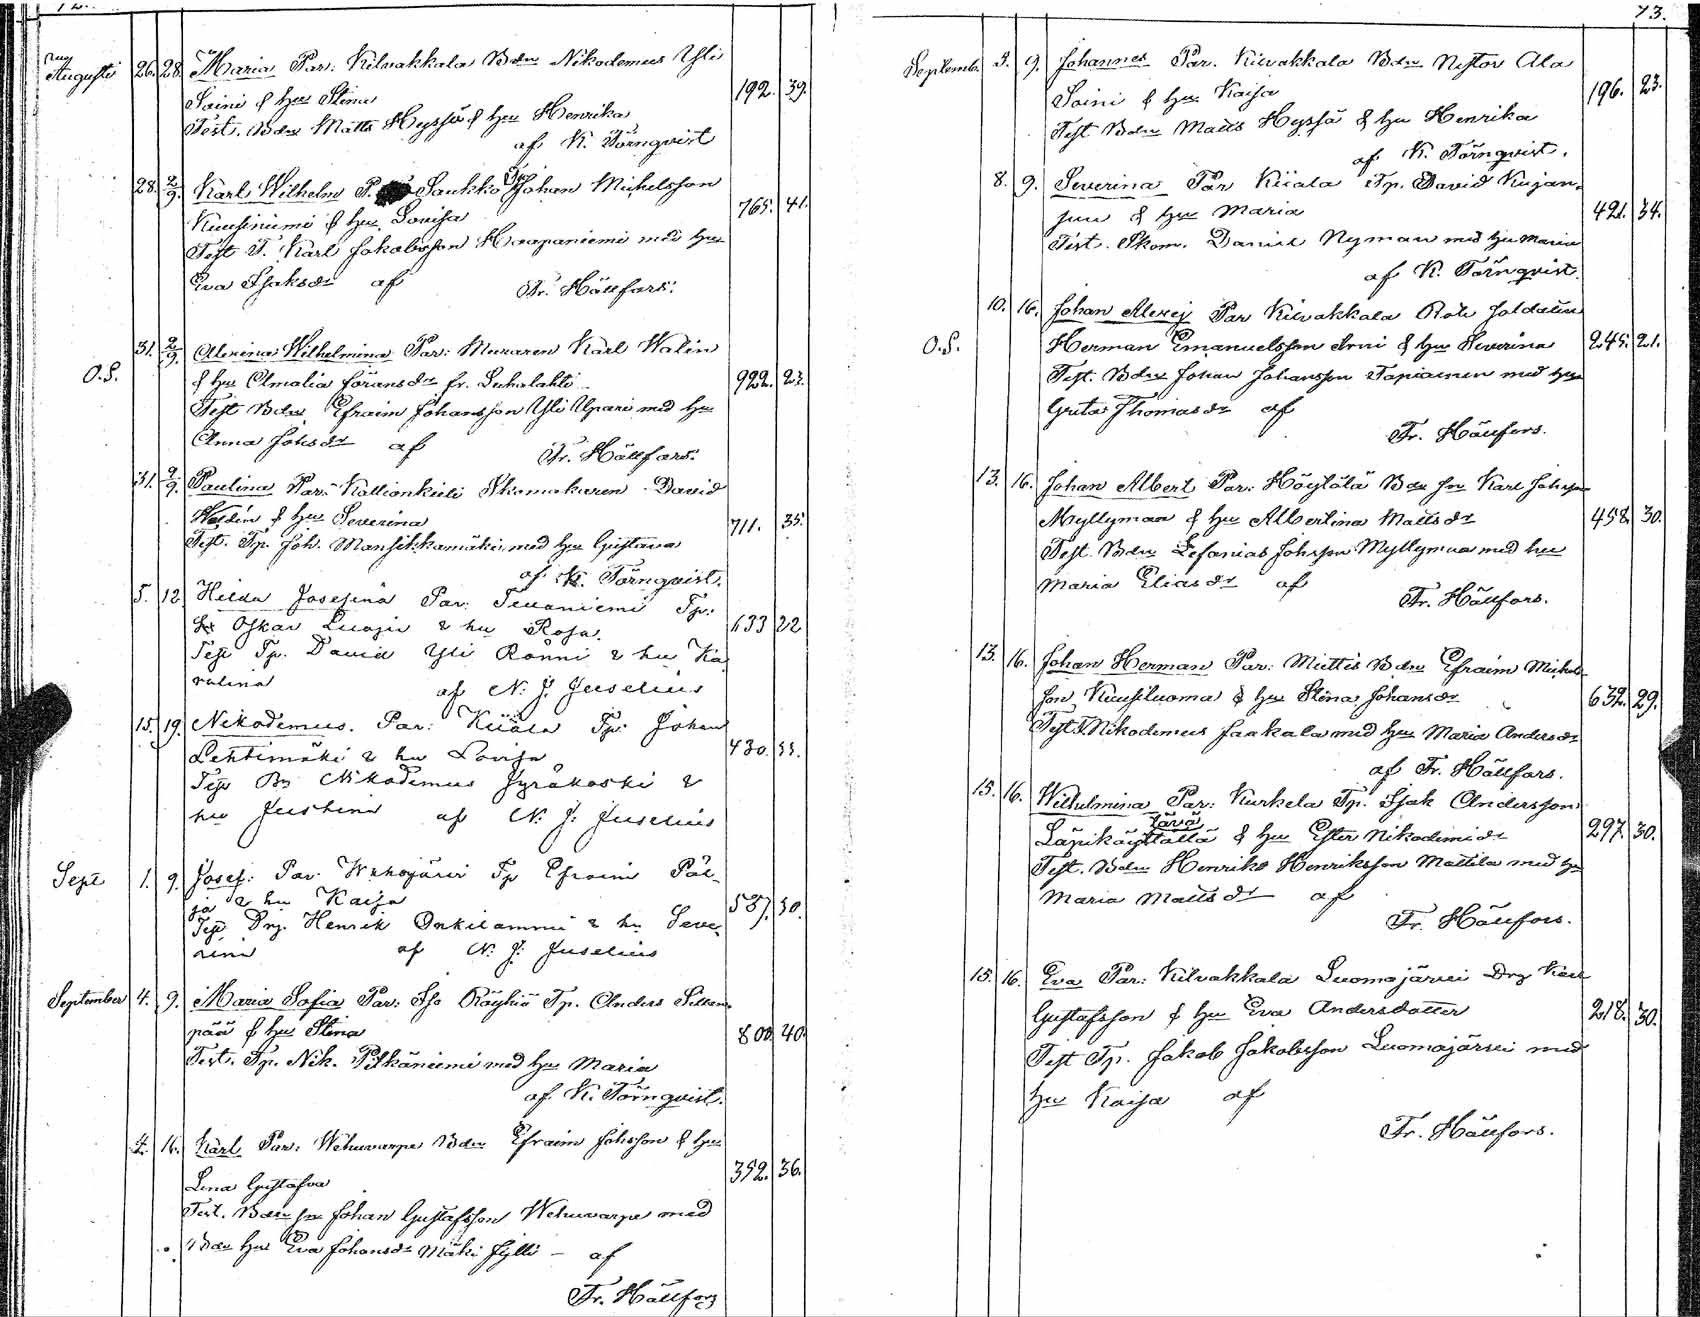 72.
Augusti 26. 28. Maria Par: Kilvakkala Bdn Nikodemus Yli
Soini & hu Stina 192. 39.
Test. Bdn Matts Heyssä & hu Henrika
af K. Törnqvist
28. 2/9. Karl Wilhelm P. Saukko Johan Michelsson
Kuusiniemi & hu Lovisa 765. 41.
Test T. Karl Jakobsson Haapaniemi med hu
Eva Isaksdr af Fr. Hällfors.
31. 2/9. Alexina Wilhelmina Par: Muraren Karl Walin
O.S. & hu Amalia Göransdr fr. Luhalahti 922. 23.
Test Bdn Efraim Johansson Yli Upari med hu
Anna Johsdr af Fr. Hällfors.
31. 2/9. Paulina Par: Kallionkieli Skomakaren David
& hu Severina 711. 35.
Test. Tp. Joh. Mansikkamäki med hu Gustava
af K. Törnqvist.
5. 12. Hilda Josefina Par: Tevaniemi Tp:
Oskar & hu Rosa. 633 22
Test Tp. David Yli Rönni & hu Ka
rolina af N. J. Juselius
15. 19. Nikodemus. Par: Kiiala Tp: Johan
Lehtimäki & hu Lovisa 430. 33.
Test Bn Nikodemus Jyräkoski &
hu Justina af N. J. Juselius
Sept 1. 9. Josef: Par. Wähäjärvi Tp Efraim Pät
jä & hu Kaisa 587. 30.
Test Drg. Henrik Onkilammi & hu Seve
rina af N. J. Juselius
September 4. 9. Maria Sofia Par: Iso Röyhiö Tp. Anders Sillan
pää & hu Stina 800. 40.
Test. Tp. Nik. Pitkäniemi med hu Maria
af K. Törnqvist.
4. 16. Karl Par: Wehuvarpe Bdn Efraim Johsson & hu
Lina Gustafva 352. 36.
Test. Bdn sn Johan Gustafsson Wehuvarpe med
Bdn hu Eva Johansdr Mäki Jylli – af
Fr. Hällfors
73.
Septemb. 3. 9. Johannes Par. Kilvakkala Bdn Nestor Ala
Soini & hu Kaisa 196. 23.
Test Bdn Matts Heyssä & hu Henrika
af K. Törnqvist.
8. 9. Severina Par Kiiala Tp. David Kujan
suu & hu Maria 421. 34.
Test. Skom. Daniel Nyman med hu Maria
af K. Törnqvist.
10. 16. Johan Alexej Par Kilvakkala Rote soldaten
O.S. Herman Emanuelsson & hu Severina 245. 21.
Test. Bdn Johan Johansson Tapiainen med hu
Greta Thomasdr af
Fr. Hällfors.
13. 16. Johan Albert Par: Höytölä Bdn sn Karl Johsson
Myllymaa & hu Albertina Mattsdr 458. 30.
Test Bdn Sefanias Johsson Myllymaa med hu
Maria Eliasdr af
Fr. Hällfors.
13. 16. Johan Herman Par: Miettis Bdn Efraim Michels
son Kuusiluoma & hu Stina Johansdr 632. 29.
Test. T. Nikodemus Jaakala med hu Maria Andersdr
af Fr. Hällfors.
15. 16. Wilhelmina Par: Kurkela Tp. Isak Andersson
Läpikäytävä & hu Ester Nikodemidr 297. 30.
Test. Bdn Henrik Henriksson Mattila med hu
Maria Mattsdr af
Fr. Hällfors.
15. 16. Eva Par: Kilvakkala Luomajärvi Drg Karl
Gustafsson & hu Eva Andersdotter 218. 30.
Test Tp. Jakob Jakobsson Luomajärvi med
hu Kaisa af
Fr. Hällfors.